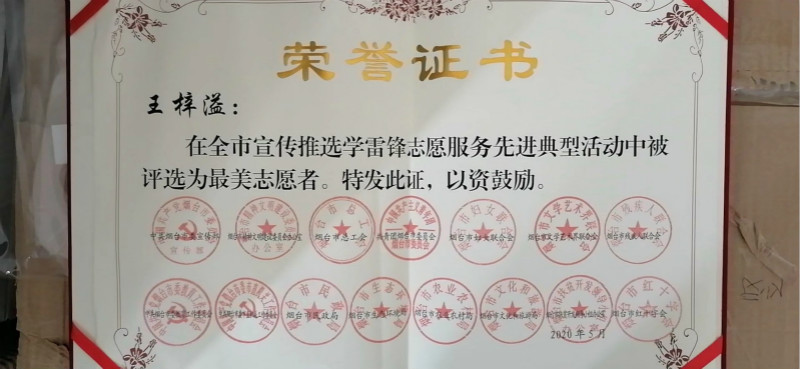 荣誉证书
王梓溢：
在全市宣传推选学雷锋志愿服务先进典型活动中被
评选为最美志愿者。特发此证，以资鼓励。
中共烟台市委宣传部 烟台市总工会 共青团烟台市委员会 烟台市妇女联合会 烟台市文学艺术界联合会 烟台市残疾人联合会
烟台市民政局 烟台市生态环境局 烟台市农业农村局 烟台市文化和旅游局 烟台市红十字会
2020年5月